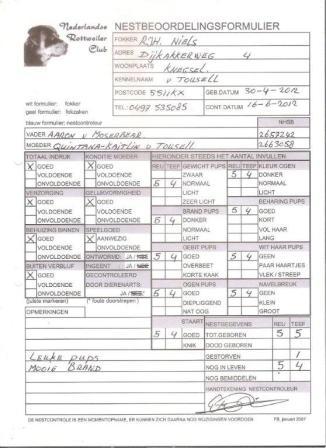 Nederlandse
Rottweiler
Club
NESTBEOORDELINGSFORMULIER
FOKKER R.J.H. Niels
ADRES Dijkakkerweg 4
WOONPLAATS Knegsel
KENNELNAAM v Tousell
POSTCODE 5511KX GEB.DATUM 30-4-2012
wit formulier: fokker
geel formulier: fokzaken
TEL.: 0497 535085 CONT.DATUM 16-6-2012
blauw formulier: nestcontroleur
NHSB
VADER Aaron v Moserbear 2657242
MOEDER Quintana-Kaitlin v Tousell 2663058
TOTAAL INDRUK KONDITIE MOEDER HIERONDER STEEDS HET AANTAL INVULLEN
X GOED X GOED REU TEEF GEWICHT PUPS REU TEEF KLEUR OGEN
VOLDOENDE VOLDOENDE ZWAAR 5 4 DONKER
ONVOLDOENDE ONVOLDOENDE 5 4 NORMAAL NORMAAL
VERZORGING GELIJKVORMIGHEID LICHT LICHT
X GOED X GOED BRAND PUPS BEHARING PUPS
VOLDOENDE VOLDOENDE 5 4 DONKER 5 4 KORT
ONVOLDOENDE ONVOLDOENDE NORMAAL VOL HAAR
BEHUIZING BINNEN SPEELGOED LICHT LANG
X GOED X AANWEZIG GEBIT PUPS WIT HAAR PUPS
VOLDOENDE ONVOLDOENDE 5 4 GOED 5 4 GEEN
ONVOLDOENDE ONTWORMD: JA / NEE OVERBEET PAAR HAARTJES
BUITEN VERBLIJF INGEENT JA / NEE KORTE KAAK VLEK / STREEP
X GOED GECONTROLEERD OGEN PUPS NAVELBREUK
VOLDOENDE DOOR DIERENARTS: 5 4 GOED 5 4 GEEN
ONVOLDOENDE JA / NEE DIEPLIGGEND KLEIN
(juiste markeren) (* foute doorstrepen) NAT OOG GROOT
OPMERKINGEN STAART NESTGEGEVENS REU TEEF
5 4 GOED TOT.GEBOREN 5 5
KNIK DOOD GEBOREN
Leuke pups GESTORVEN 1
Mooie Brand NOG IN LEVEN 5 4
NOG BEMIDDELEN
HANDTEKENING NESTCONTROLEUR
DE NESTCONTROLE IS EEN MOMENTOPNAME, ER KUNNEN ZICH DAARNA NOG WIJZIGINGEN VOORDOEN FB, januari 2007